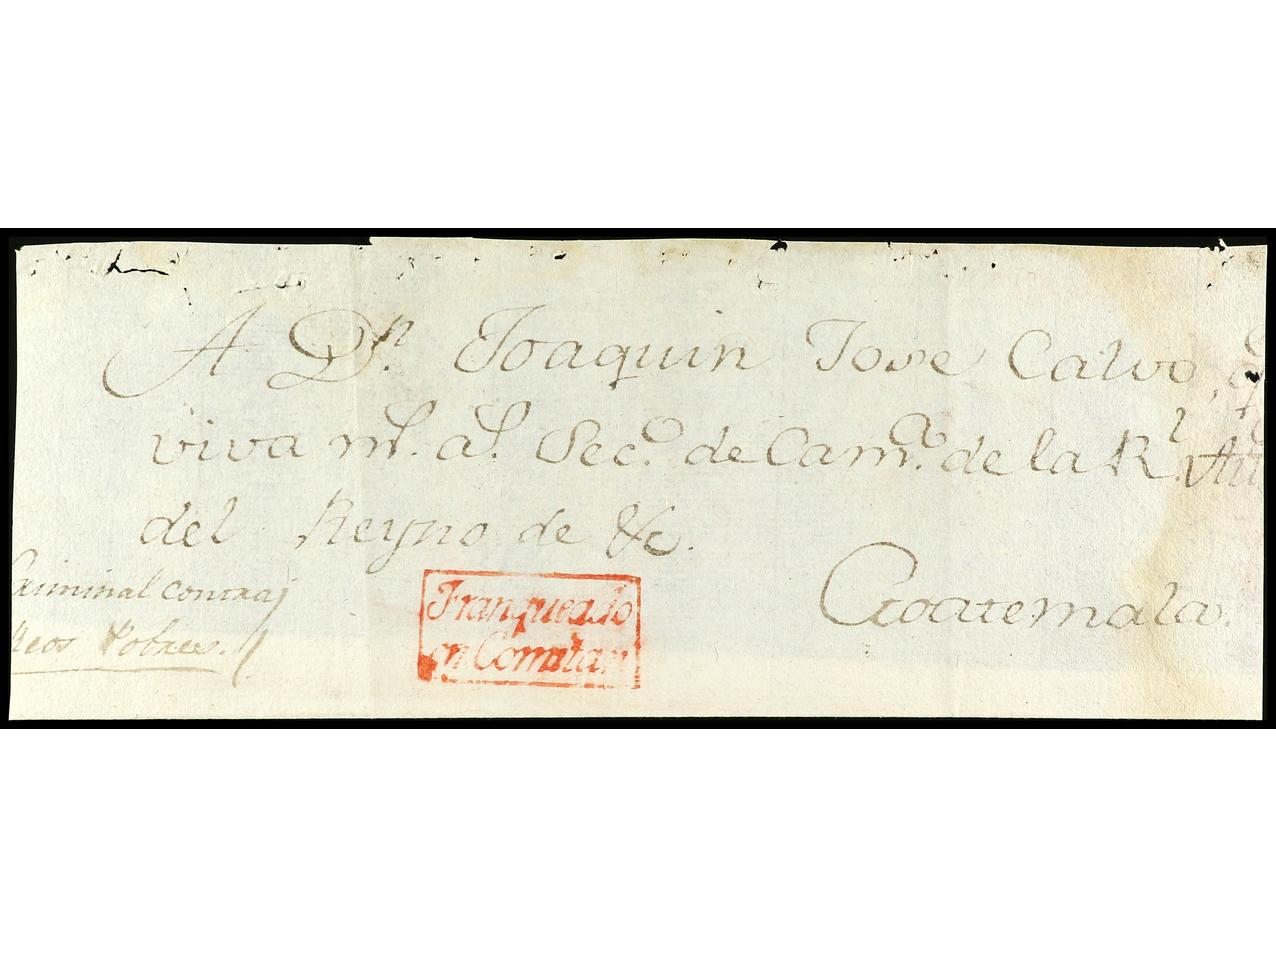 A Dn. Joaquin Jose Calvo,
viva ms. as. Sec.o de Cam.a de la Rl.
del Reyno de &c.
Guatemala.
Criminal contra
Reos Pobres.
Franqueado
en Comitan